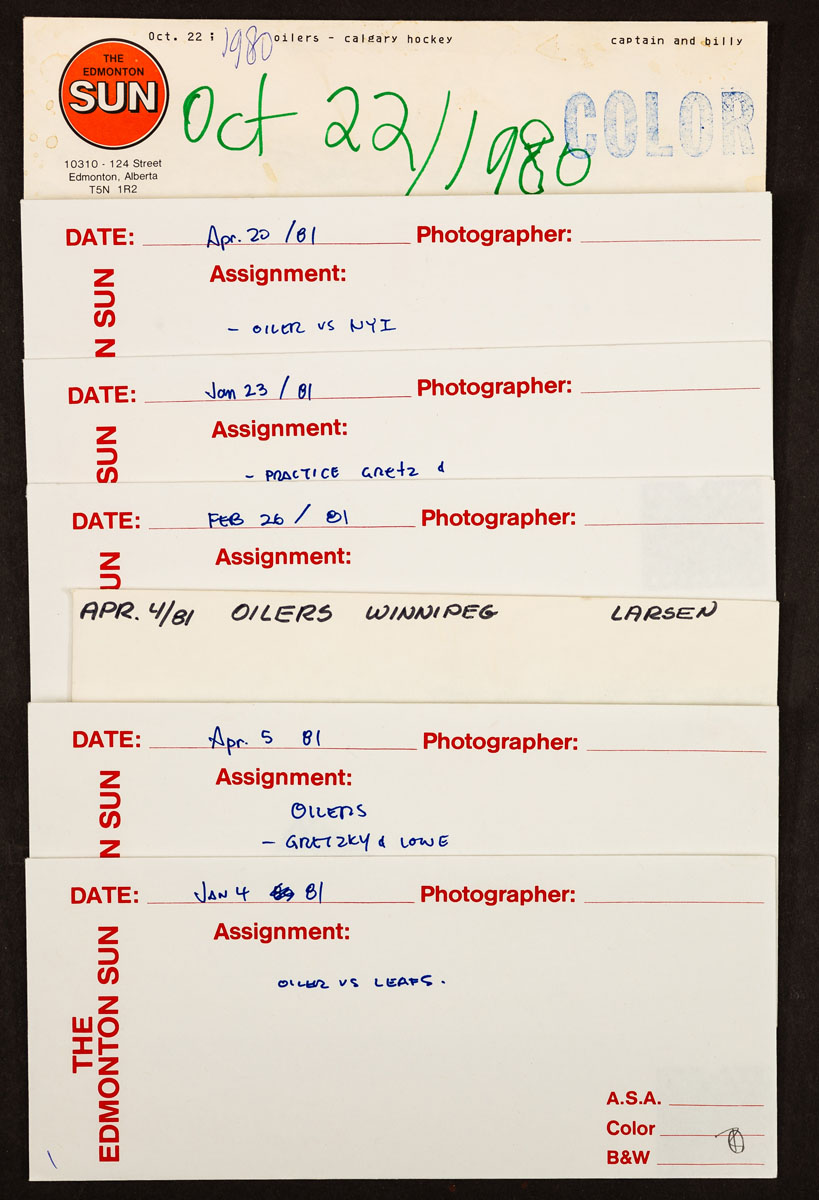 Oct. 22; 1980 oilers - calgary hockey captain and billy
THE
EDMONTON
SUN
Oct 22/1980
COLOR
10310 - 124 Street
Edmonton, Alberta
T5N 1R2
DATE: Apr. 20 /81 Photographer:
Assignment:
N SUN
- OILER VS NYI
DATE: Jan 23 / 81 Photographer:
Assignment:
SUN
- PRACTICE Gretz &
DATE: FEB 26 / 81 Photographer:
Assignment:
UN
APR. 4/81 OILERS WINNIPEG LARSEN
DATE: Apr. 5 81 Photographer:
Assignment:
N SUN
OILERS
- GRETZKY & LOWE
DATE: JAN 4 81 Photographer:
Assignment:
OILER VS LEAFS.
THE
EDMONTON SUN
A.S.A.
Color
B&W